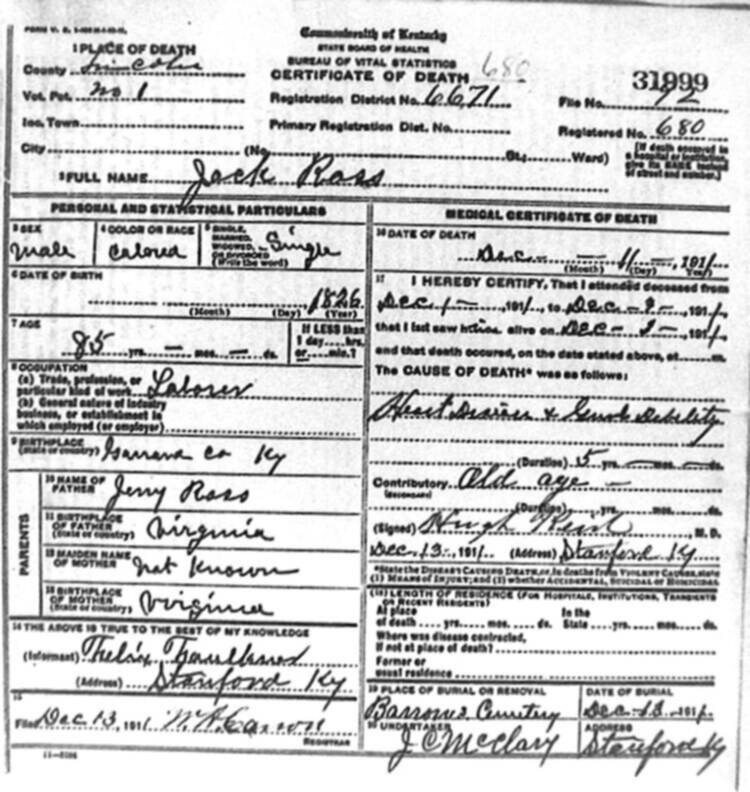 Commonwealth of Kentucky
STATE BOARD OF HEALTH
BUREAU OF VITAL STATISTICS
CERTIFICATE OF DEATH 680
1 PLACE OF DEATH
County Lincoln
Vot. Pct. No 1
Registration District No. 6671
31999
File No. 72
Inc. Town
Primary Registration Dist. No.
Registered No. 680
City (No. St.; Ward)
[If death occurred in a hospital or institution, give its NAME instead of street and number.]
2 FULL NAME Jack Ross
PERSONAL AND STATISTICAL PARTICULARS
3 SEX
male
4 COLOR OR RACE
Colored
5 SINGLE, MARRIED, WIDOWED OR DIVORCED (Write the word) Single
6 DATE OF BIRTH
1826
(Month) (Day) (Year)
7 AGE
85 yrs. – mos. – ds.
If LESS than 1 day hrs. or min.?
8 OCCUPATION
(a) Trade, profession, or
particular kind of work Laborer
(b) General nature of industry
business, or establishment in
which employed (or employer)
9 BIRTHPLACE
(State or country) Garrard Co Ky
PARENTS
10 NAME OF FATHER Jerry Ross
11 BIRTHPLACE OF FATHER (State or country) Virginia
12 MAIDEN NAME OF MOTHER Not Known
13 BIRTHPLACE OF MOTHER (State or country) Virginia
14 THE ABOVE IS TRUE TO THE BEST OF MY KNOWLEDGE
(Informant) Faulkner
(Address) Stanford Ky
15
Filed Dec 13, 1911
REGISTRAR
MEDICAL CERTIFICATE OF DEATH
16 DATE OF DEATH
Dec – 11 –, 1911
(Month) (Day) (Year)
17 I HEREBY CERTIFY, That I attended deceased from
Dec 1 –, 1911, to Dec – 9 –, 1911
that I last saw him alive on Dec – 9 –, 1911
and that death occured, on the date stated above, at m.
The CAUSE OF DEATH* was as follows:
Heart Disease & Genl Debility
(Duration) 5 yrs. – mos. – ds.
Contributory Old age –
(SECONDARY)
(Duration) yrs. mos. ds.
(Signed) Hugh M. D.
Dec 13, 1911 (Address) Stanford Ky
*State the DISEASE CAUSING DEATH, or, in deaths from VIOLENT CAUSES, state
(1) MEANS OF INJURY; and (2) whether ACCIDENTAL, SUICIDAL or HOMICIDAL
(18) LENGTH OF RESIDENCE (FOR HOSPITALS, INSTITUTIONS, TRANSIENTS
OR RECENT RESIDENTS)
At place of death yrs. mos. ds. In the State yrs. mos. ds.
Where was disease contracted,
if not at place of death?
Former or
usual residence
19 PLACE OF BURIAL OR REMOVAL
Cemetery
DATE OF BURIAL
Dec – 13 – 1911
20 UNDERTAKER
J C McClary
ADDRESS
Stanford Ky